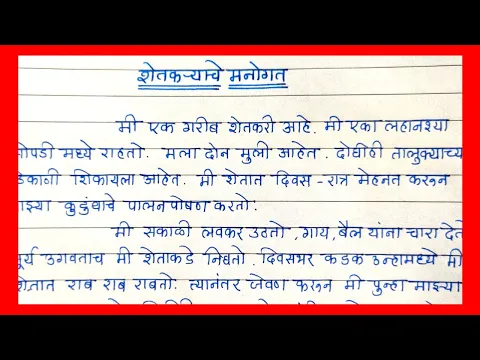 शेतकऱ्याचे मनोगत
मी एक गरीब शेतकरी आहे. मी एका लहानश्या
ोपडी मध्ये राहतो. मला दोन मुली आहेत. दोघीही तालुक्याच्य
ठिकाणी शिकायला आहेत. मी शेतात दिवस - रात्र मेहनत करून
माझ्या कुटुंबाचे पालनपोषण करतो.
मी सकाळी लवकर उठतो, गाय, बैल यांना चारा देते
सूर्य उगवताच मी शेताकडे निघतो. दिवसभर कडक उन्हामध्ये मी
शेतात राब राब राबतो. त्यानंतर जेवण करून मी पुन्हा माझ्या